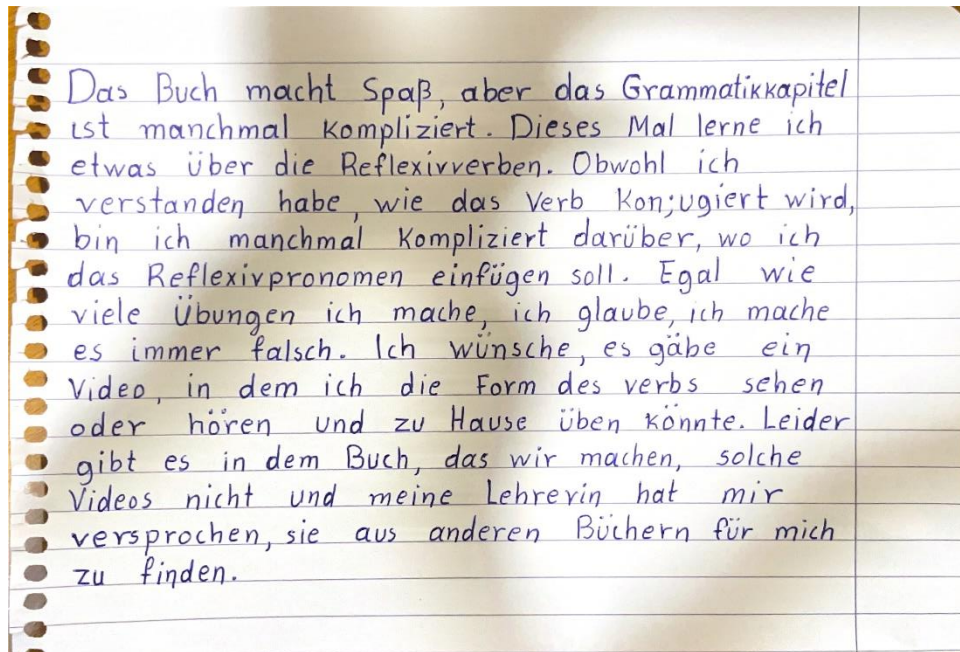 Das Buch macht Spaß, aber das Grammatikkapitel
ist manchmal kompliziert. Dieses Mal lerne ich
etwas über die Reflexivverben. Obwohl ich
verstanden habe, wie das Verb konjugiert wird,
bin ich manchmal kompliziert darüber, wo ich
das Reflexivpronomen einfügen soll. Egal wie
viele Übungen ich mache, ich glaube, ich mache
es immer falsch. Ich wünsche, es gäbe ein
Video, in dem ich die Form des verbs sehen
oder hören und zu Hause üben könnte. Leider
gibt es in dem Buch, das wir machen, solche
Videos nicht und meine Lehrerin hat mir
versprochen, sie aus anderen Büchern für mich
zu finden.